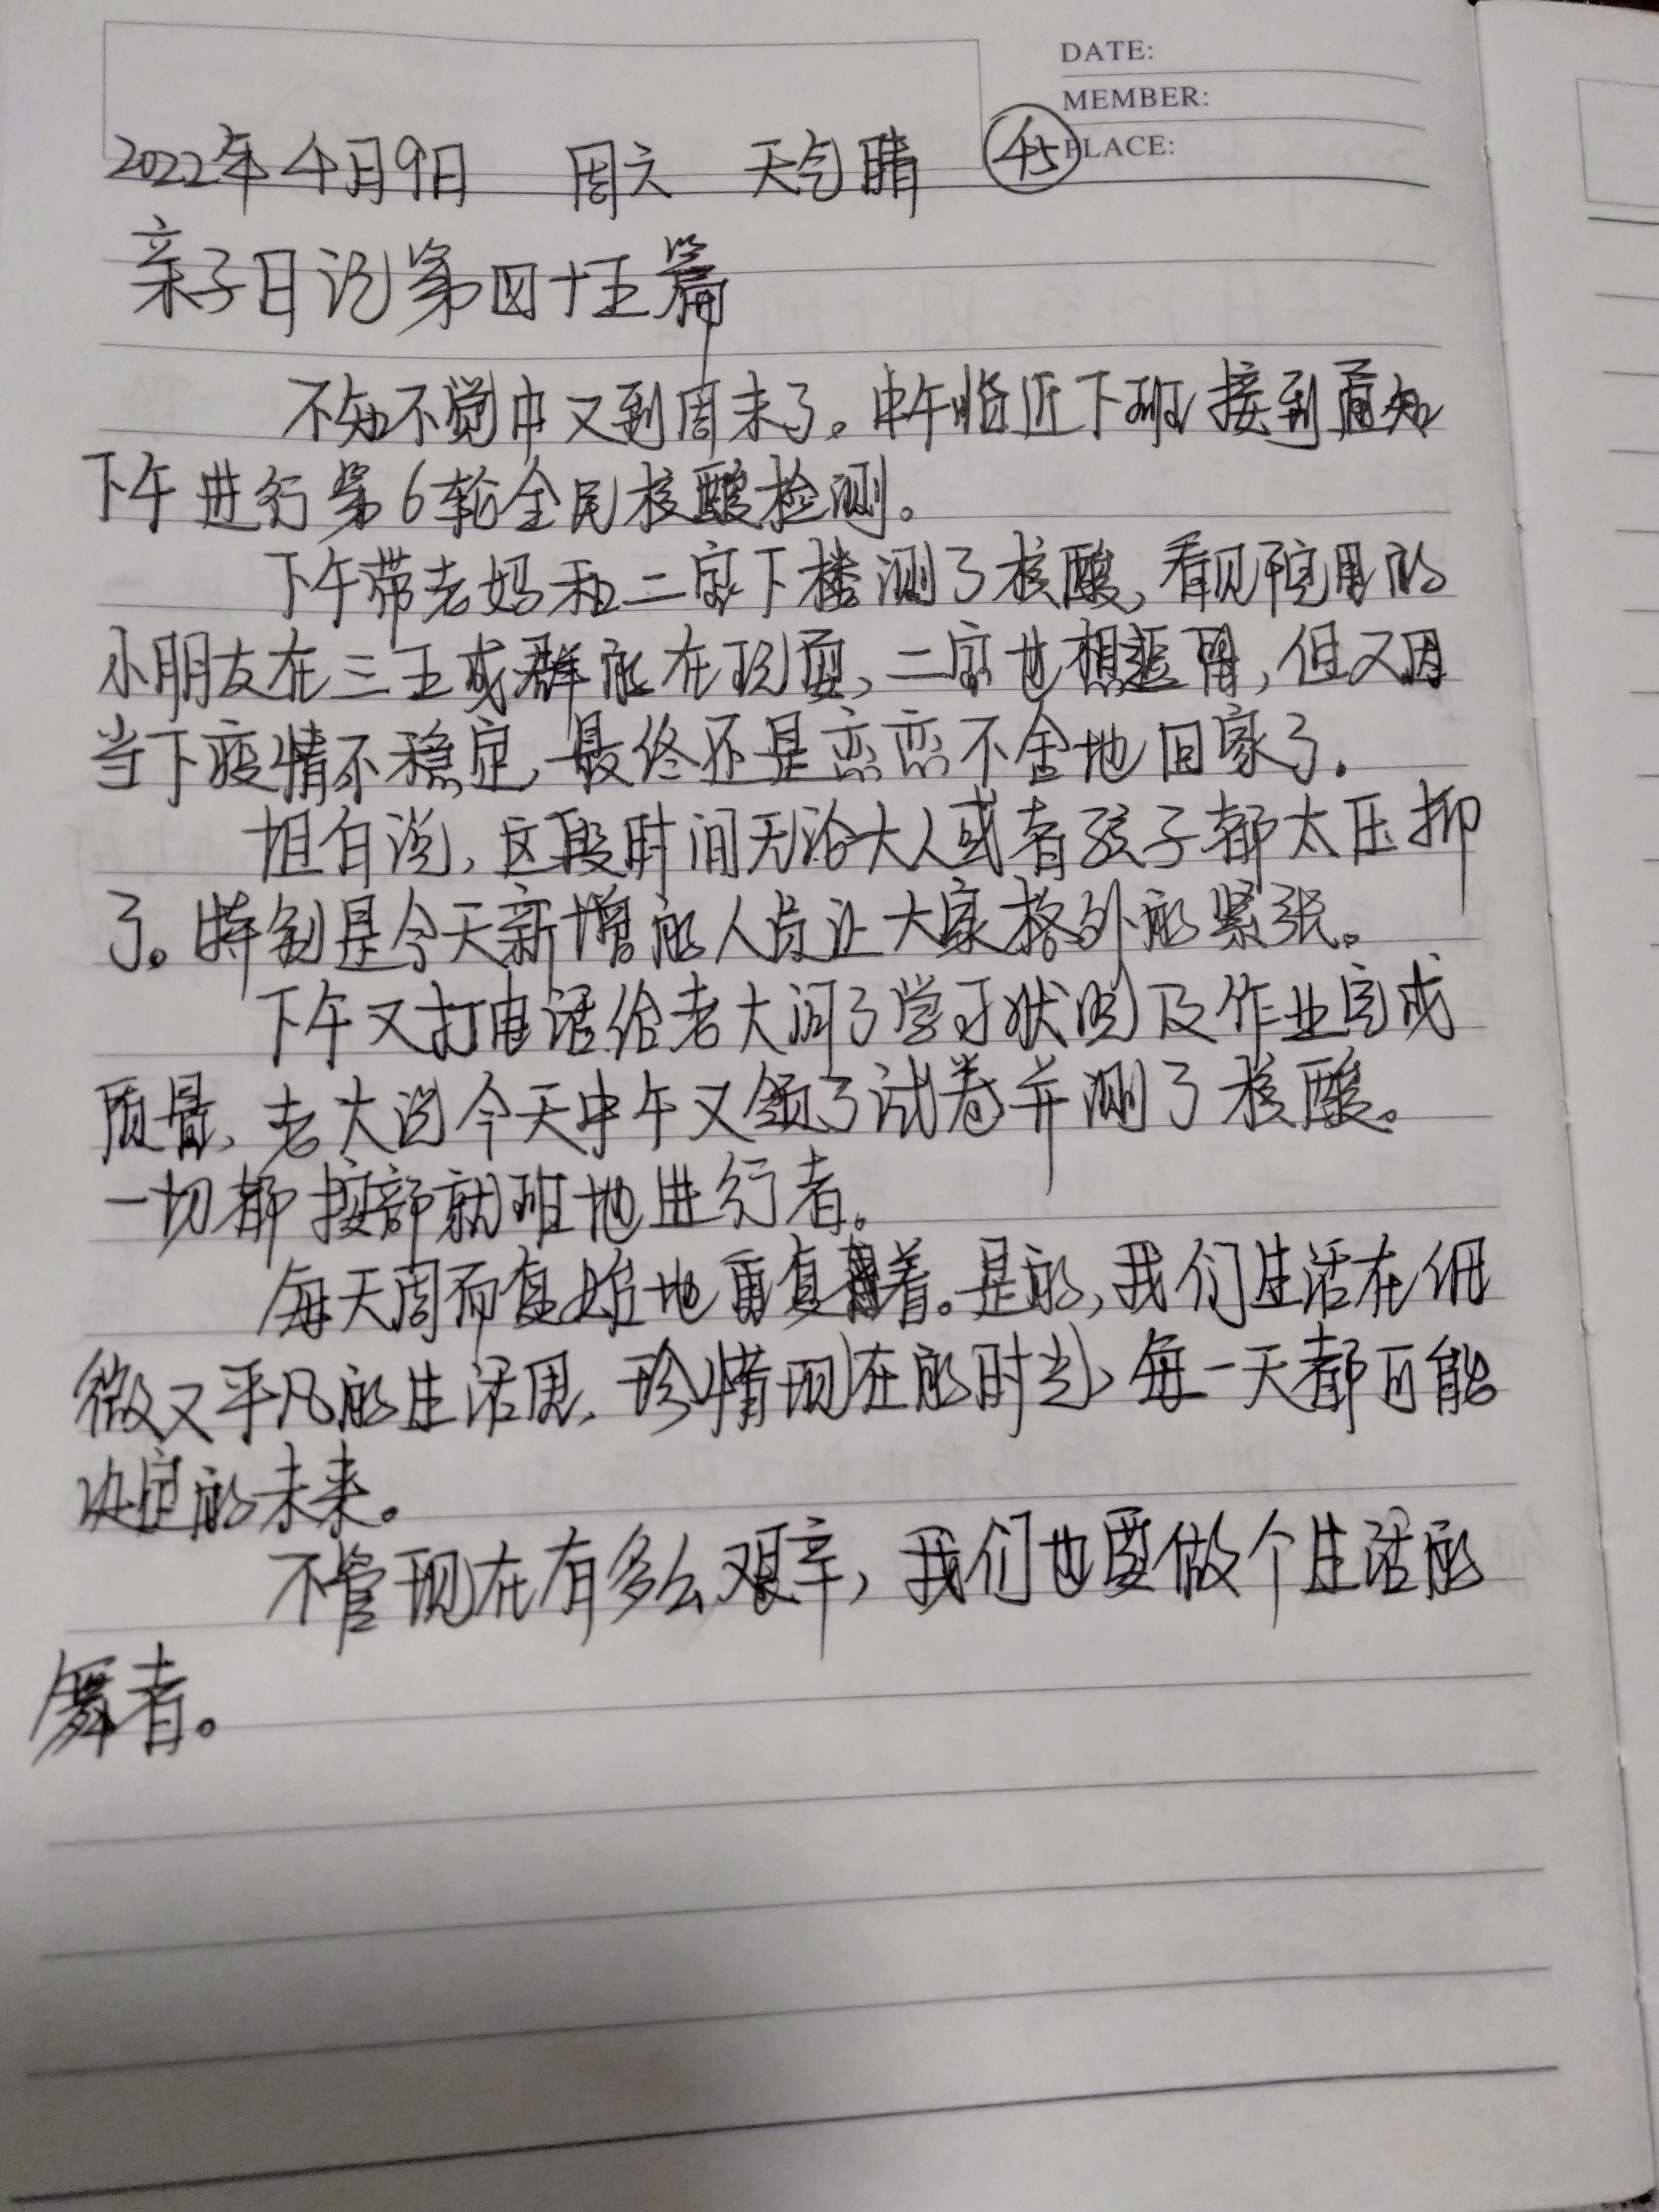 DATE:
MEMBER:
PLACE:
2022年4月9日 周六 天气晴 45
亲子日记第四十五篇
不知不觉中又到周末了。中午临近下班接到通知
下午进行第6轮全民核酸检测。
下午带老妈和二宝下楼测了核酸,看见院里的
小朋友在三五成群的在玩耍,二宝也想逗留,但又因
当下疫情不稳定,最终还是恋恋不舍地回家了.
坦白说,这段时间无论大人或者孩子都太压抑
了。特别是今天新增的人员让大家格外的紧张。
下午又打电话给老大问了学习状况及作业完成
质量,老大说今天中午又领了试卷并测了核酸。
一切都按部就班地进行者。
每天周而复始地重复着。是的,我们生活在细
微又平凡的生活里,珍惜现在的时光,每一天都可能
决定的未来。
不管现在有多么艰辛,我们也要做个生活的
舞者。